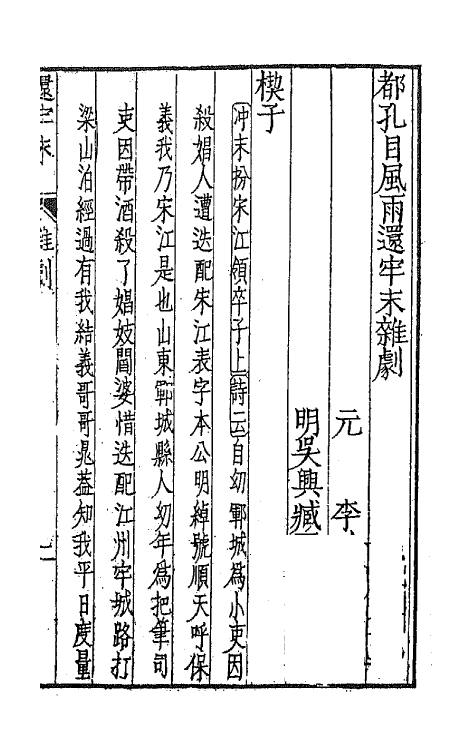 都孔目風雨還牢末雜劇
元　李
明吳興臧
楔子
冲末扮宋江領卒子上詩云自幼鄆城爲小吏因
殺娼人遭迭配宋江表字本公明綽號順天呼保
義我乃宋江是也山東鄆城縣人幼年爲把筆司
吏因帶酒殺了娼妓閻婆惜迭配江州牢城路打
梁山泊經過有我結義哥哥晁蓋知我平日度量
還牢末　雜劇　一